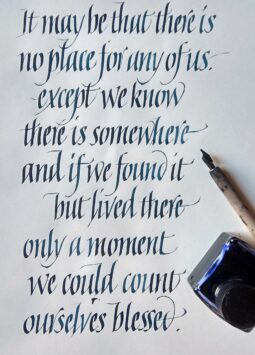 It may be that there is
no place for any of us.
except we know
there is somewhere
and if we found it
but lived there
only a moment
we could count
ourselves blessed.